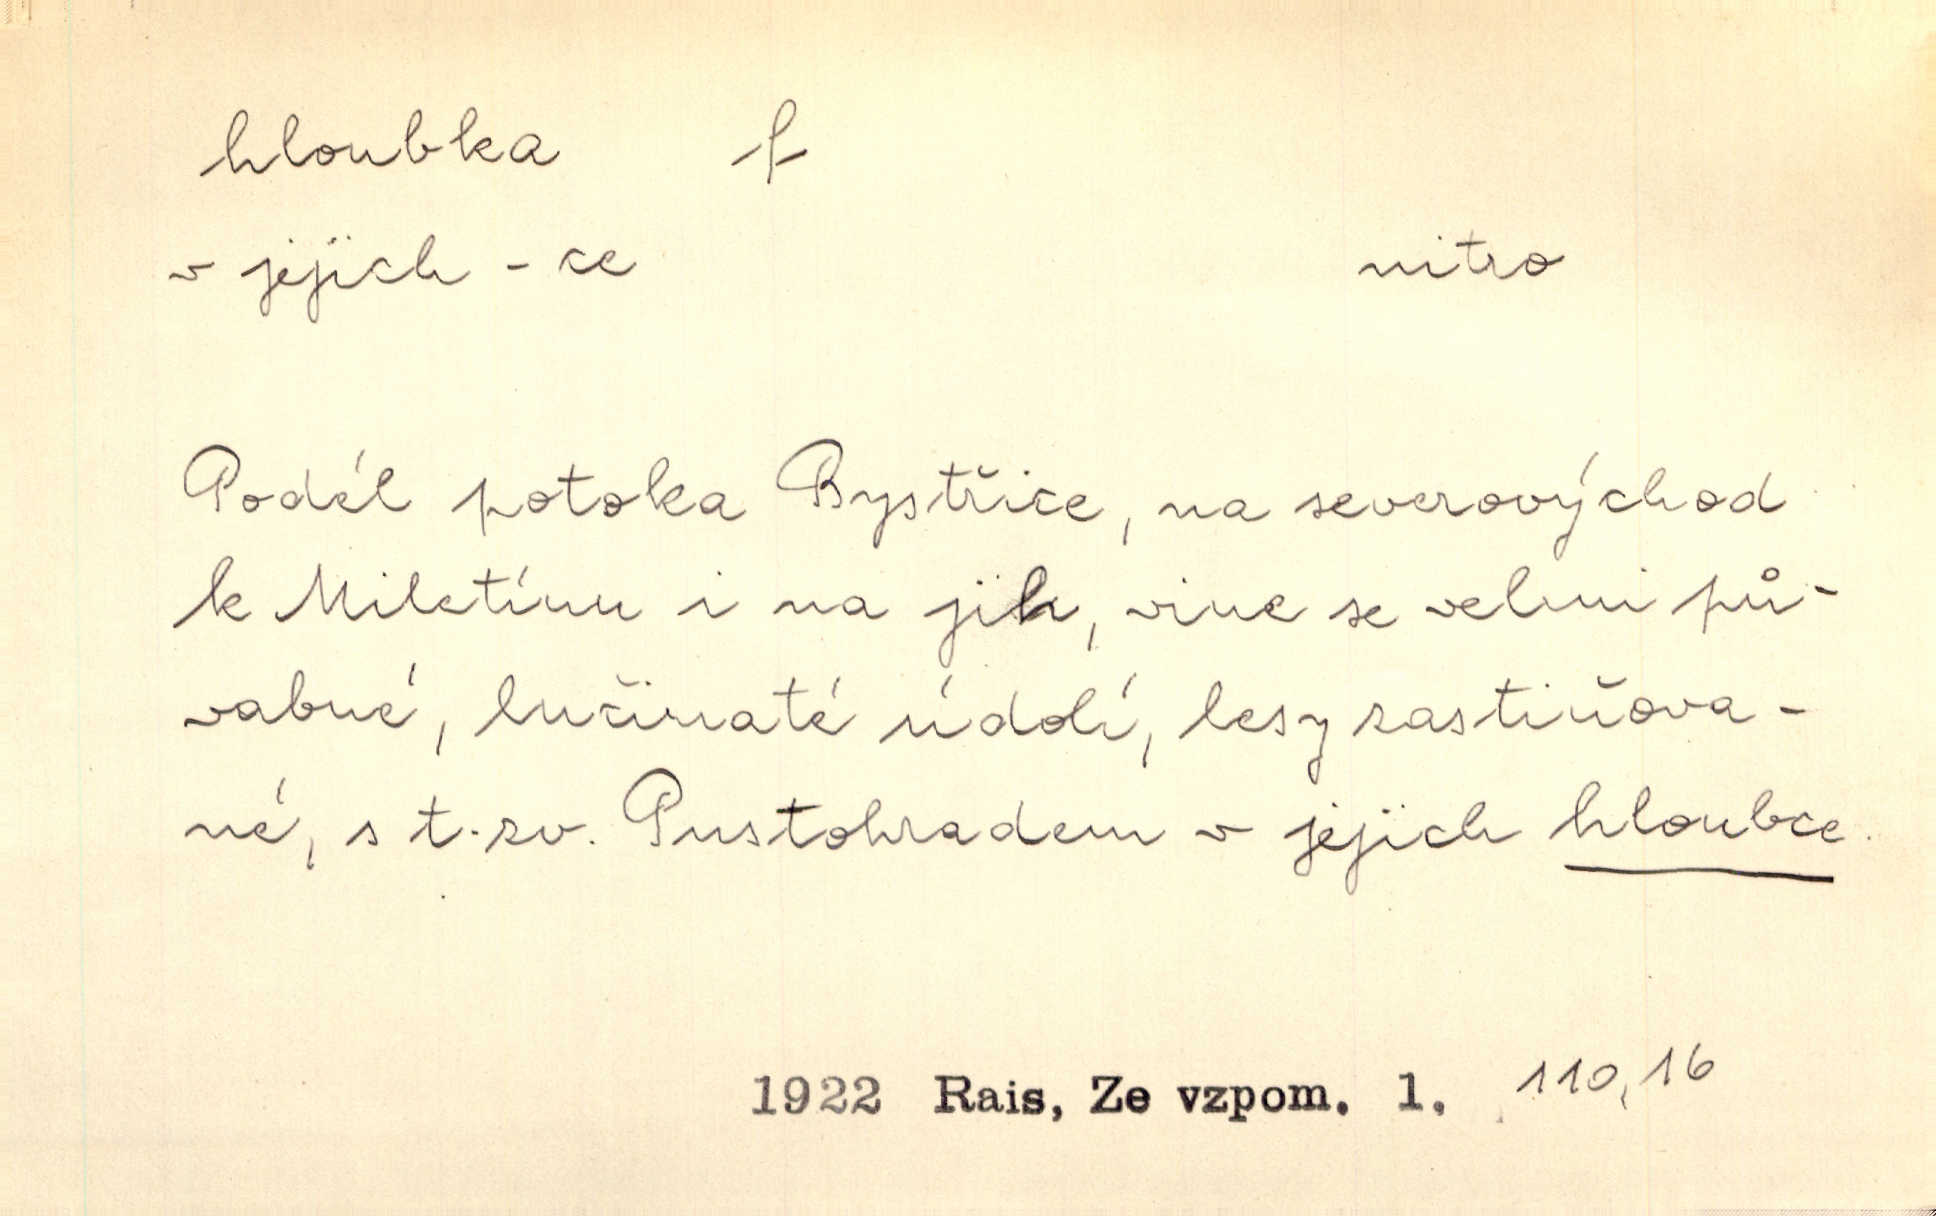 hloubka f
v jejich -ce nitro
Podél potoka Bystřice, na severovýchod
k Miletínu i na jih, vine se velmi pů-
vabné, lučinaté údolí, lesy zastiňova-
né, s t. zv. Pustohradem v jejich hloubce.
1922 Rais, Ze vzpom. 1. 110,16